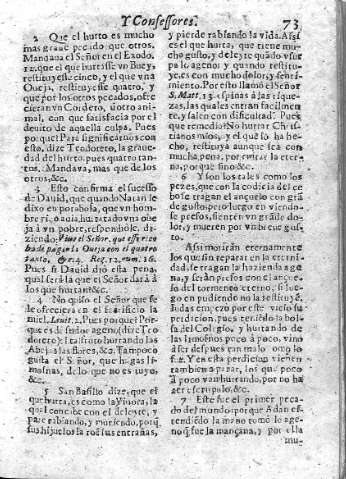 Y Confessores. 73
2 Que el hurto es mucho
mas graue pecado que otros.
Mandaua el Señor en el Exodo.
22. que el que hurtasse vn Buey,
restituyesse cinco, y el que vna
Oueja, restituyesse quatro, y
que por los otros pecados, ofre
ciertan vn Cordero, ù otro ani
mal, con que satisfacia por el
delito de aquella culpa. Pues
porquè? Para significarnos con
esto, dize Teodoreto, la graue-
dad del hurto, pues quatro tan-
tos, Mandava, mas que de los
otros, &c.
3 Esto confirma el sucesso
de David, que quando Natan le
dixo en parabola, que vn hom-
bre rico auia hurtado vna obe
ja à vn pobre, respondiòle, di-
ziendo: Viue el Señor, que esse
ha de pagar la Oueja con el quatro
tanto, &c. 4. Reg. 12. num. 16.
Pues si David diò esta pena,
qual serà la que el Señor darà à
los que hurtan? &c.
4 No quiso el Señor que se
le ofreciera en el sacrificio la
miel. Leuit. 2. Pues porque? Por-
que es de sudor ageno (dize Teo
doreto) e la estàn hurtando las
Abejas à las flores, &c. Tampoco
gusta el Señor, que hagas li-
mosnas, de lo que no es tuyo,
&c.
5 San Basilio dize, que el
que hurta, es como la Viuora, la
qual concibe con el deleyte, y
pare rabiando, y muriendo, porq̃
sus hijuelos la roẽ sus entrañas,
y pierde rabiando la vida. Assi
es el que hurta, que tiene mu-
cho gusto, y deleyte quãdo vsur
pa lo ageno; y quando restitu-
ye, es con mucho dolor, y senti-
miento. Por esto llamò el Señor
S. Matt. 13. espinas à las rique-
zas, las quales entran facilmen
te, y salen con dificultad. Pues
que remedio? No hurtar Chris-
tianos mios, y el que lo ha he-
cho, restituya aunque sea con
mucha pena, por euitar la eter-
na, porque sino &c.
6 Y son los tales como los
pezes, que con la codicia del ce
bo se tragan el anzuelo con grã
de gusto, pero luego en viendo-
se presos, sienten vn grãde do-
lor, y mueren por vn breue gus-
to.
Assi moriràn eternamente
los que sin reparar en la eterni-
dad, se tragan la hazienda age-
na, y seràn presos con el anzue-
lo del tormento eterno, si lue-
go en pudiendo no la restituyẽ.
Iudas empezò por este vicio su
perdicion, pues teniẽdo la bolsa
del Colegio, y hurtando de
las limosnas poco à poco, vino
à ser despues tan malo como lo
fue. Y en esta perdicion vienen
tambien a parar, los que poco
à poco van hurtando, por no ha
zer escrupulo, &c.
7 Este fue el primer peca-
do del mundo: porque Adan es-
tendiẽdo la mano tomò lo age-
no, q̃ fue la mançana, y por ella
mu-